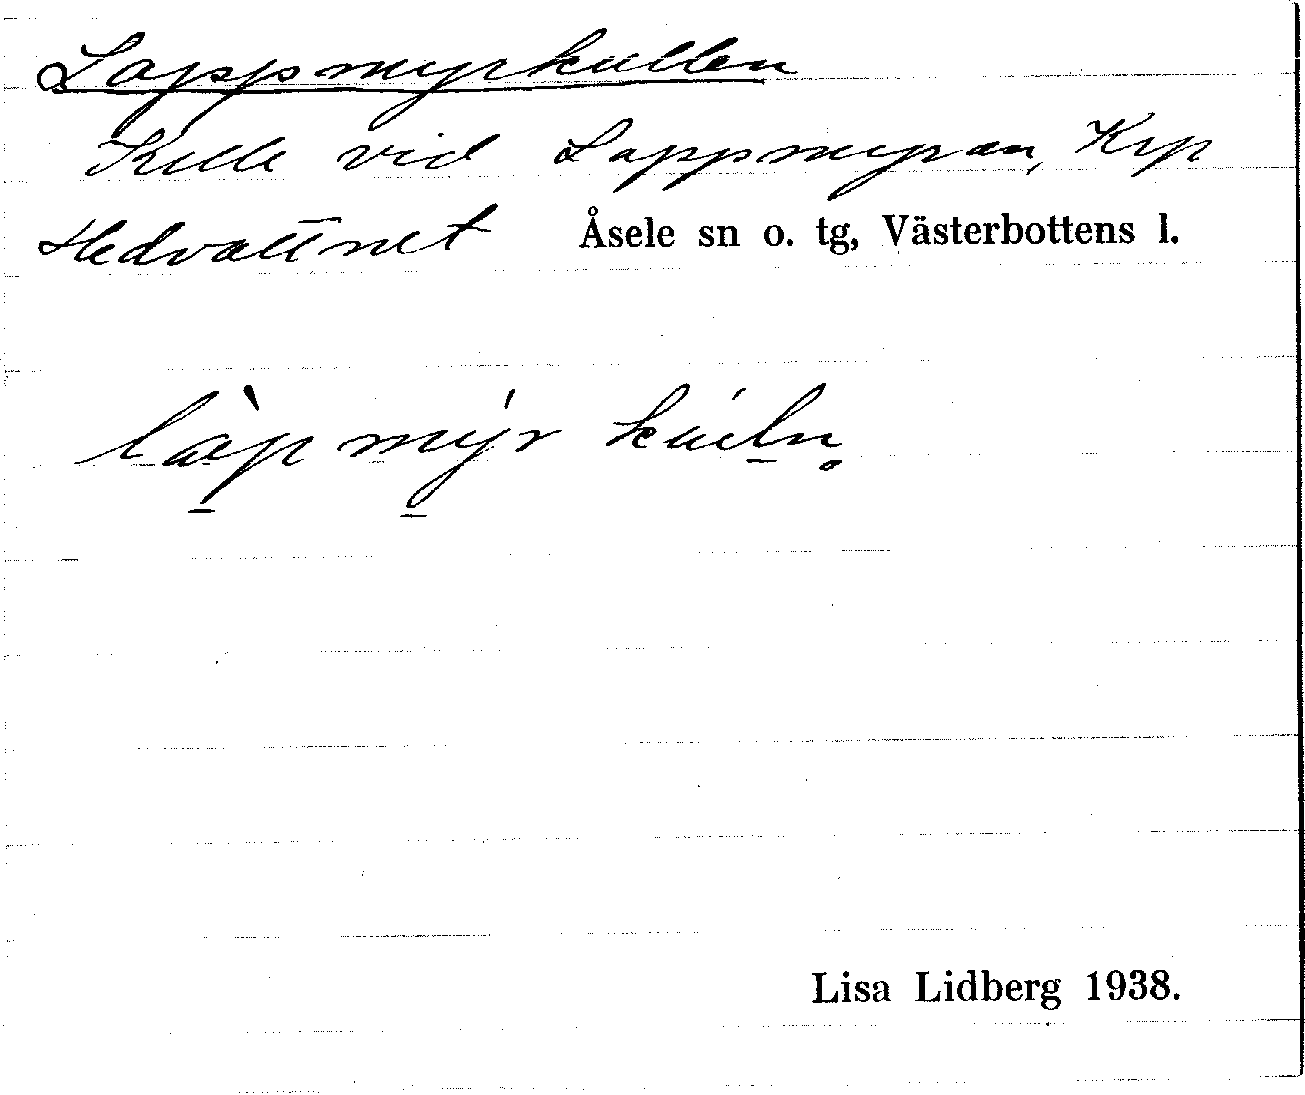 Lappmyrkullen
Kulle vid Lappmyran, Krp
Hedvattnet Åsele sn o. tg, Västerbottens l.
làp̠mý̠r kúl̠n̥
Lisa Lidberg 1938.